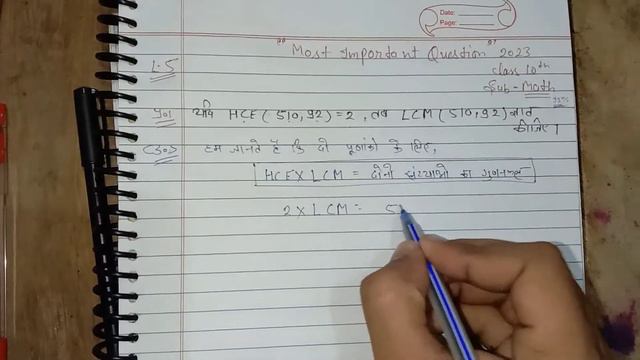 Date:
Page:
"Most Important Question" 2023
class 10th
Sub - Math
1.5
प्र01 यदि HCF (510,92) = 2, तब LCM (510,92) ज्ञात
कीजिए।
उ0 हम जानते है कि दो पूर्णांको के लिए,
HCF X LCM = दोनो संख्याओ का गुणनफल
2 X LCM = 5